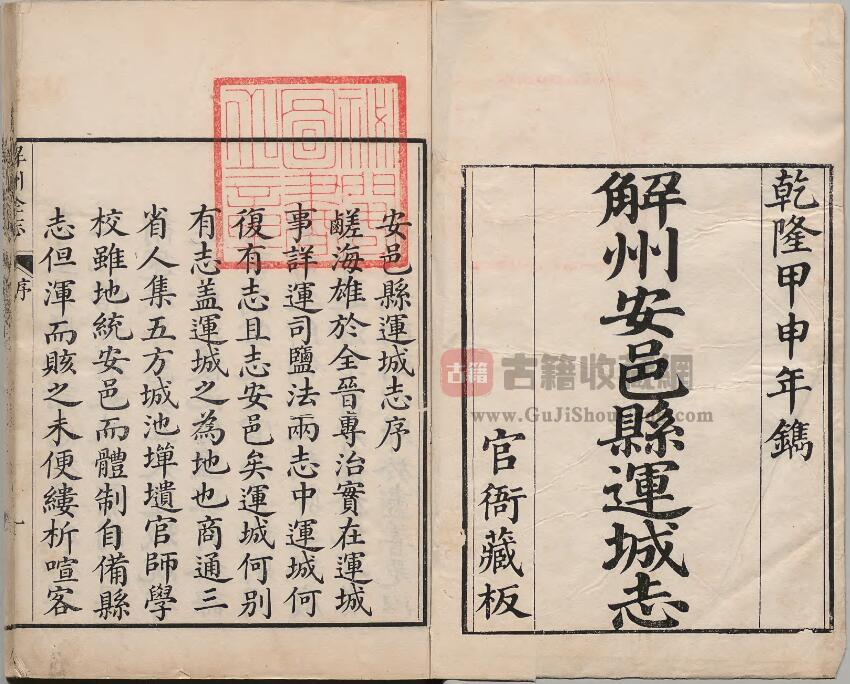 乾隆甲申年鐫
解州安邑縣運城志
官衙藏板
安邑縣運城志序
鹺海雄於全晉專治實在運城
事詳運司鹽法兩志中運城何
復有志且志安邑矣運城何別
有志盖運城之為地也商通三
省人集五方城池墠壝官師學
校雖地統安邑而體制自備縣
志但渾而賅之未便縷析喧客
解州全志
序
一
古籍 古籍收藏網